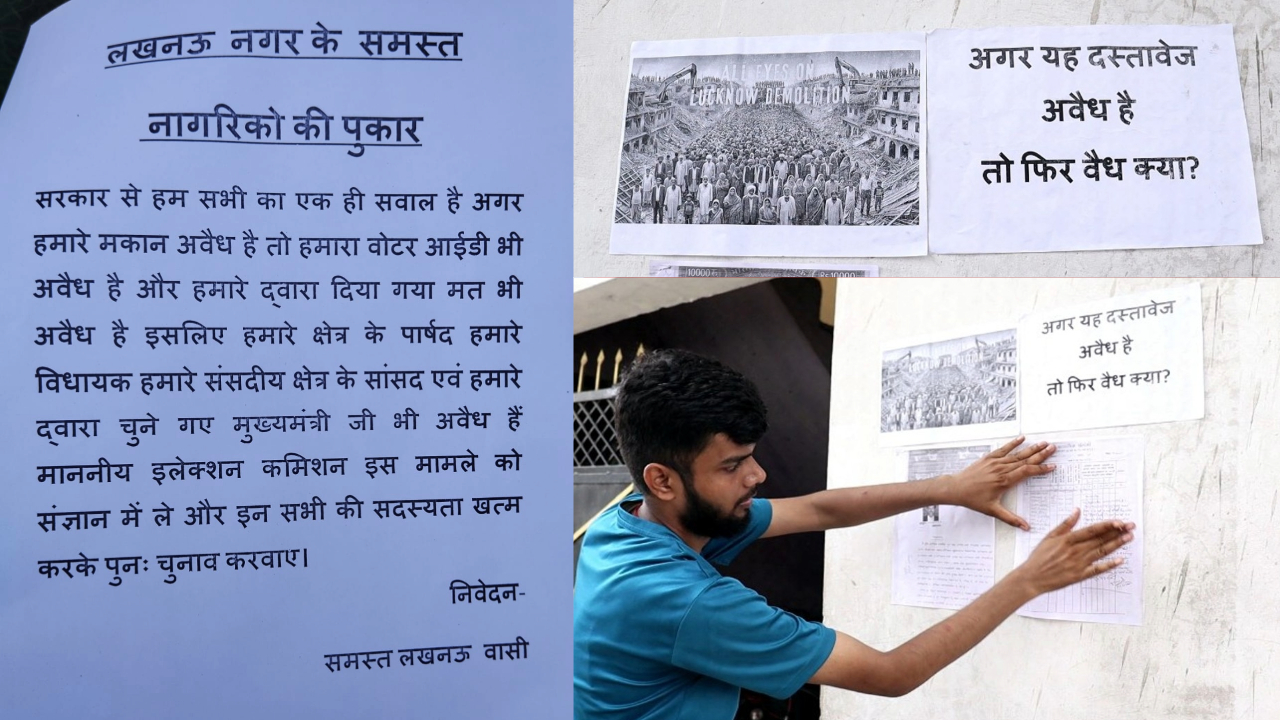 लखनऊ नगर के समस्त
नागरिको की पुकार
सरकार से हम सभी का एक ही सवाल है अगर
हमारे मकान अवैध है तो हमारा वोटर आईडी भी
अवैध है और हमारे द्वारा दिया गया मत भी
अवैध है इसलिए हमारे क्षेत्र के पार्षद हमारे
विधायक हमारे संसदीय क्षेत्र के सांसद एवं हमारे
द्वारा चुने गए मुख्यमंत्री जी भी अवैध हैं
माननीय इलेक्शन कमिशन इस मामले को
संज्ञान में ले और इन सभी की सदस्यता खत्म
करके पुनः चुनाव करवाए।
निवेदन-
समस्त लखनऊ वासी
ALL EYES ON
LUCKNOW DEMOLITION
अगर यह दस्तावेज
अवैध है
तो फिर वैध क्या?
अगर यह दस्तावेज
अवैध है
तो फिर वैध क्या?